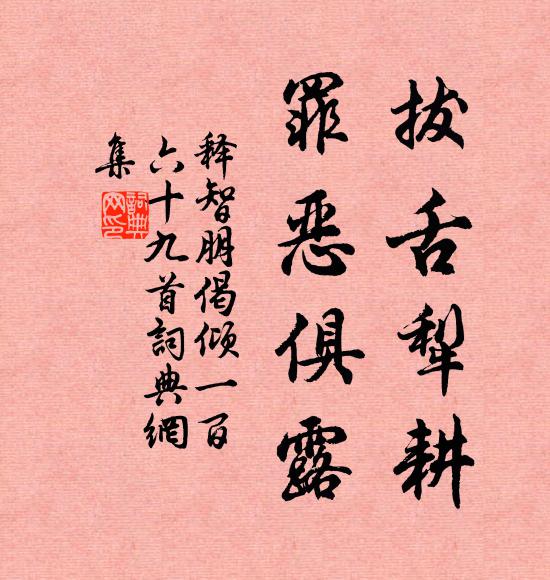 拔舌犁耕
罪惡俱露
释智朋偈倾一百
六十九首詞典網
集
詞典
网印